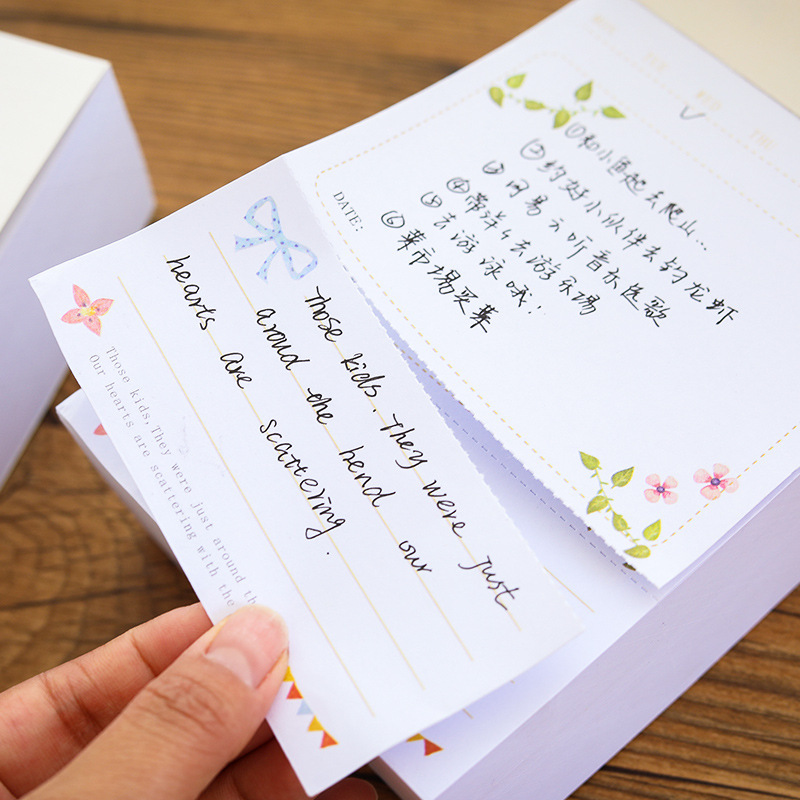 DATE:
①和小鱼起去爬山...
②约好小伙伴去钓龙虾
③网易云听音乐选歌
④带洋々去游乐場
⑤去游泳哦!
⑥菜市場买菜
Those kids. They were just
aroud the bend our
hearts are scattering.
Those kids,They were just around th
Our hearts are scattering with the